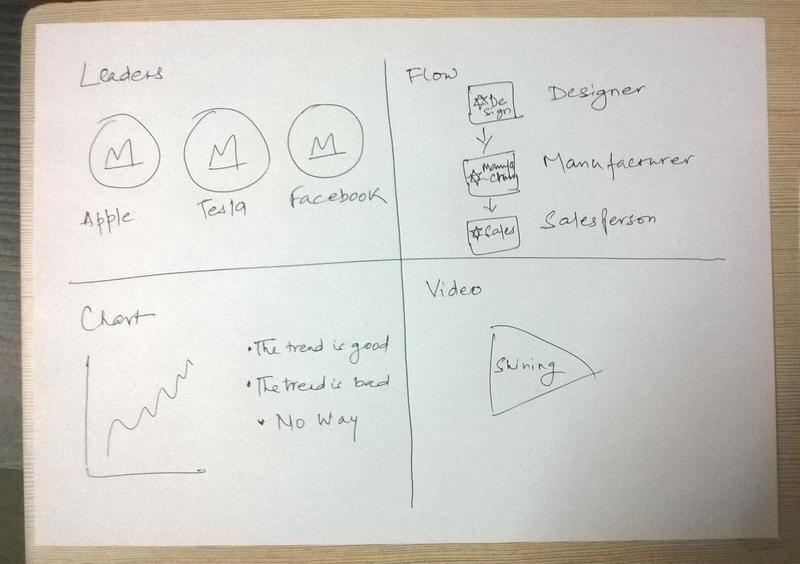 Leaders
M M M
Apple Tesla Facebook
Flow
De
sign
Designer
Manufa
cturing
Manufacturer
Sales
Salesperson
Chart
• The trend is good
• The trend is bad
• No Way
Video
Shining